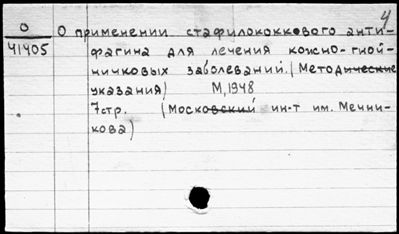 4
О О применении стафилококкового анти-
41405 фагина для лечения кожно-гной-
ничковых заболеваний. (Методические
указания) М, 1948
7стр. (Московский ин-т им. Мечни-
кова)